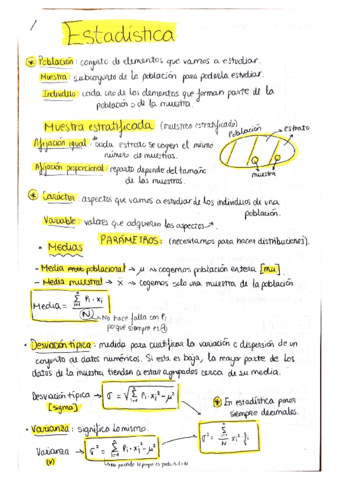 Estadística
Población: conjunto de elementos que vamos a estudiar.
Muestra: subconjunto de la población para poderla estudiar.
Individuo: cada uno de los elementos que forman parte de la
población o de la muestra.
Muestra estratificada (muestreo estratificado)
Población
estrato
muestra
Afijación igual: cada estrato se cogen el mismo
número de muestras.
Afijación proporcional: reparto depende del tamaño
de las muestras.
Carácter: aspectos que vamos a estudiar de los individuos de una
población.
Variable: valores que adquieren los aspectos
PARÁMETROS: (necesitamos para hacer distribuciones).
• Medias
- Media poblacional → μ → cogemos población entera [mu]
- Media muestral → x → cogemos solo una muestra de la población
Media = Σ Pi · xi
(N) → No hace falta con Pi
porque siempre es 1
• Desviación típica: medida para cuantificar la variación o dispersión de un
conjunto de datos numéricos. Si esta es baja, la mayor parte de los
datos de la muestra tienden a estar agrupados cerca de su media.
Desviación típica → σ = √Σ Pi · xi² - μ²
[sigma]
En estadística poner
siempre decimales.
• Varianza: significa lo mismo.
Varianza → σ² = Σ Pi · xi² - μ²
(V)
σ² = Σ xi² fi
N